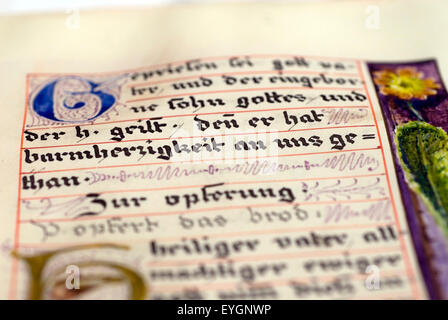 Gepriesen sei gott va=
ter und der eingebor
ne sohn gottes, und
der h. geist, denn er hat
barmherzigkeit an uns ge=
than
Zur opferung
opfert das brod.
Heiliger vater all
mächtiger ewiger
alamy
Image ID: EYGNWP
www.alamy.com